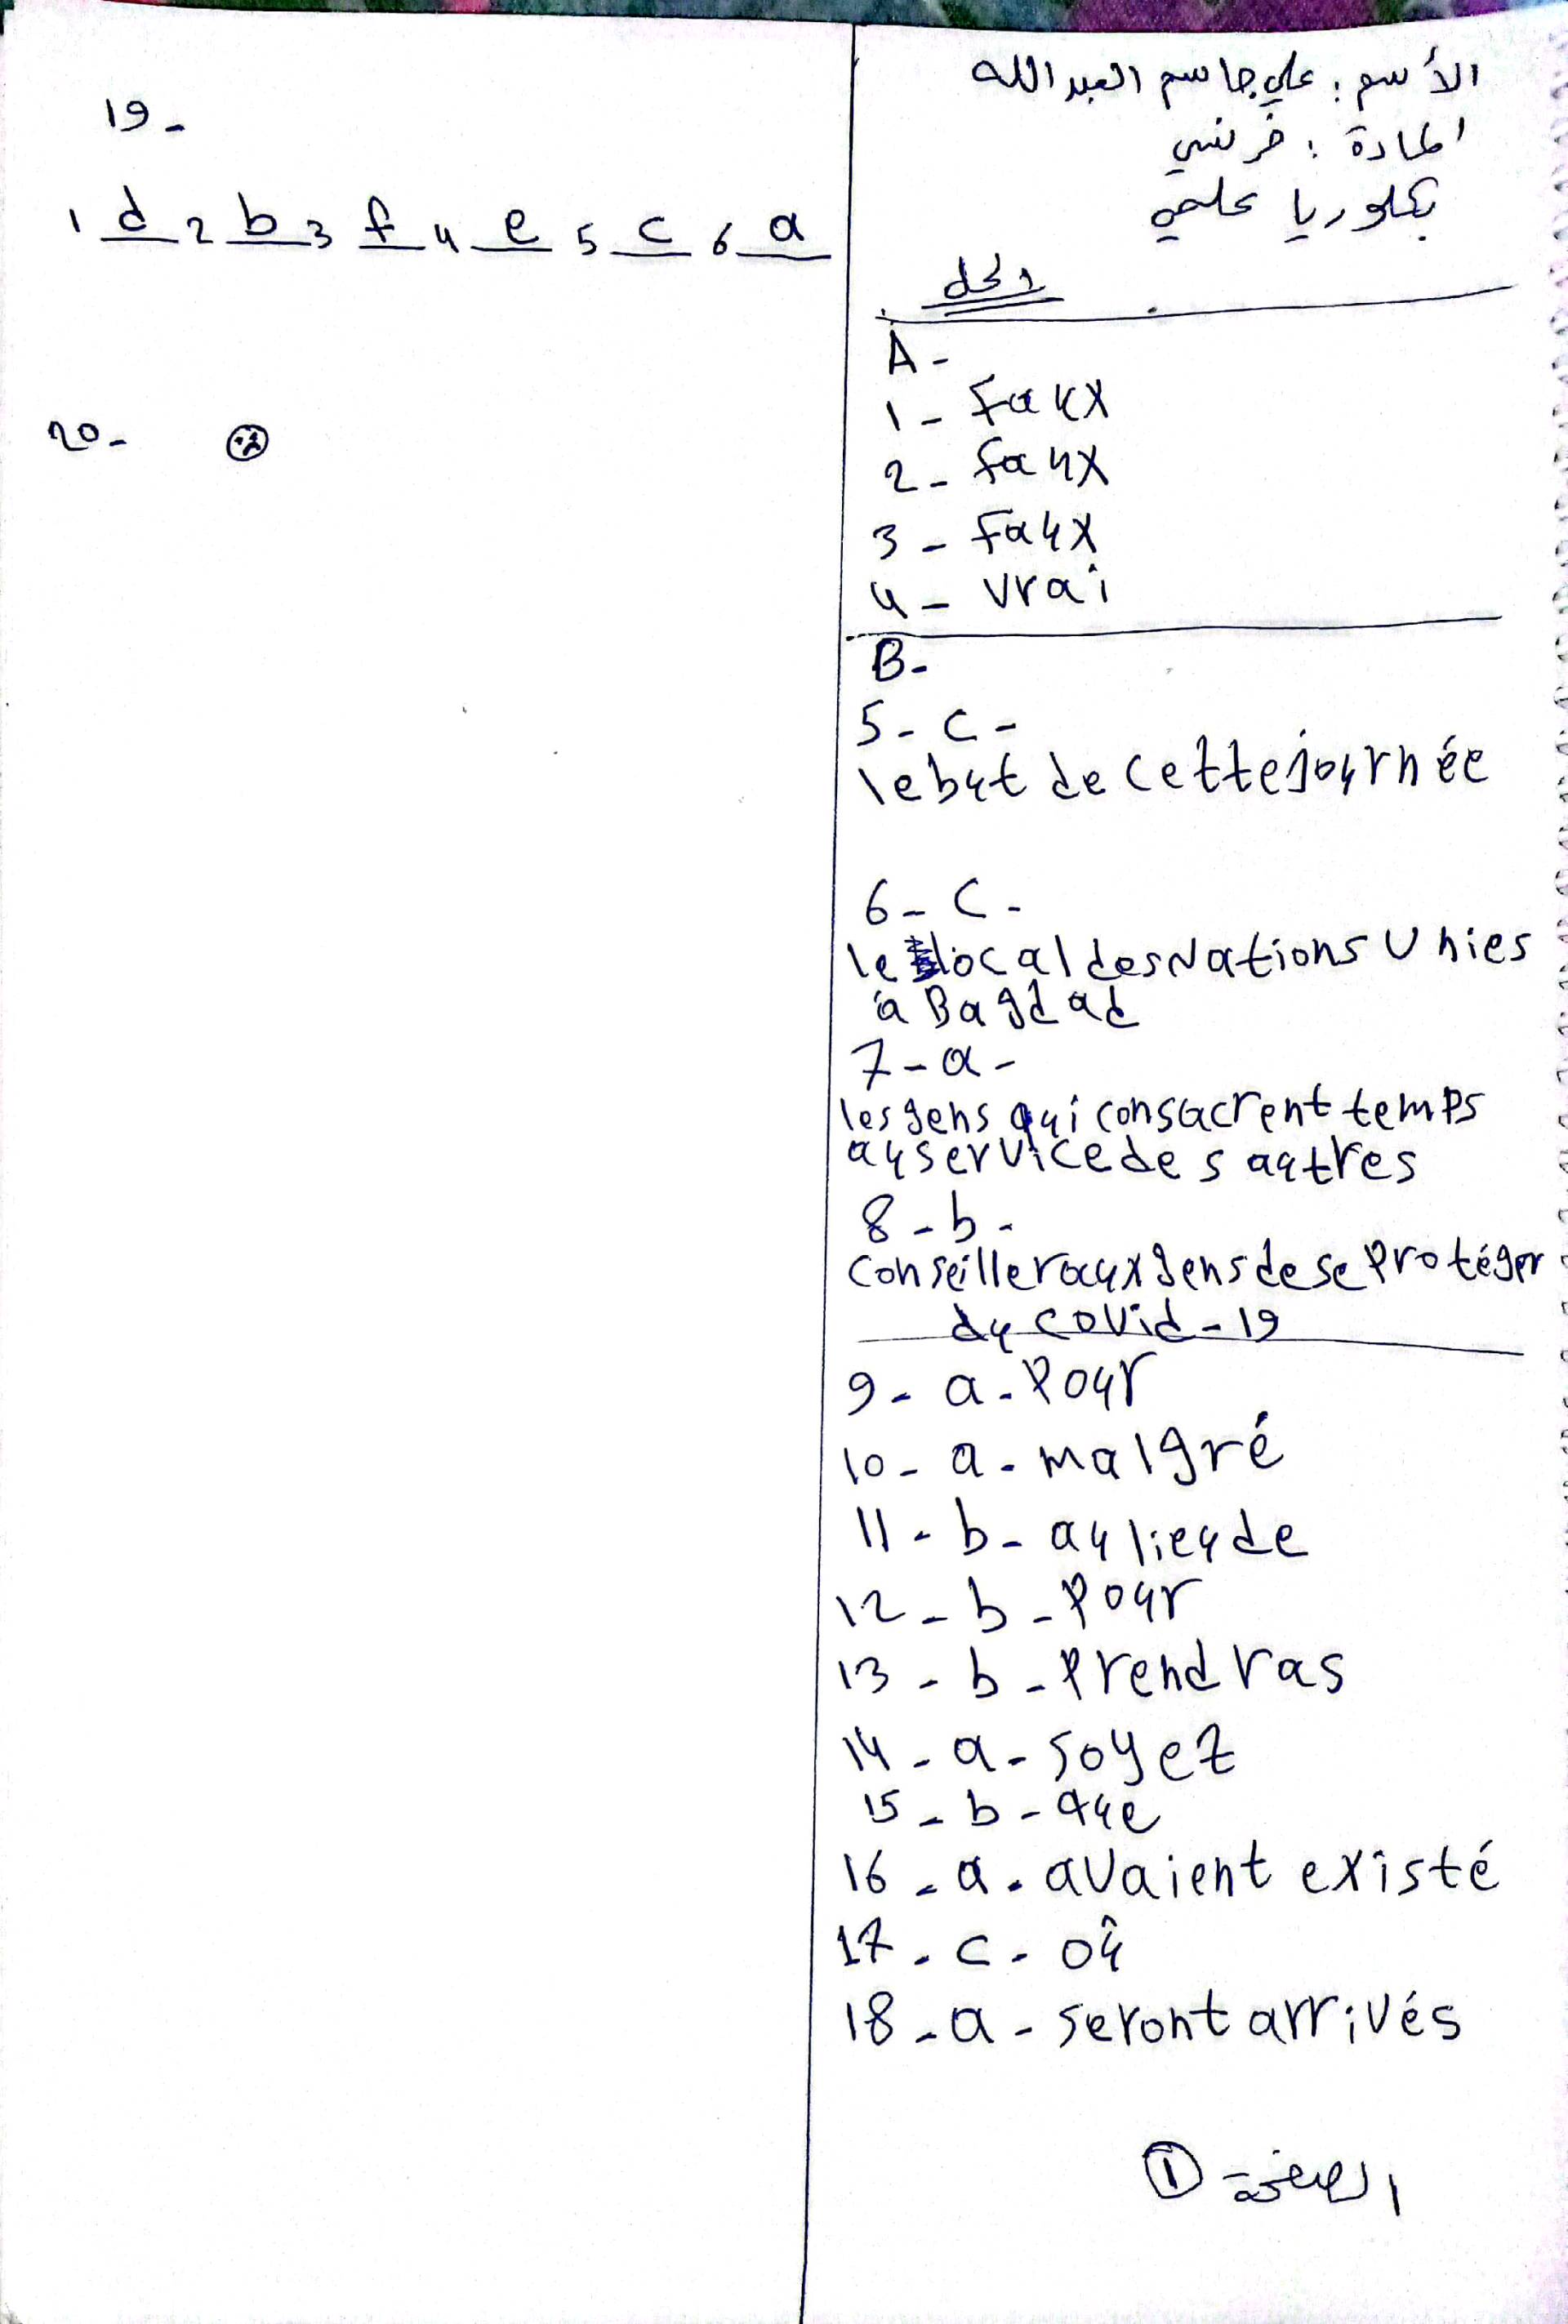 الأسم : علي جاسم العبدالله
المادة : فرنسي
بكلوريا علمي
الحل
A -
1 - Faux
2 - faux
3 - Faux
4 - vrai
B -
5 - c -
le but de cette journée
6 - c -
le local des Nations Unies
à Bagdad
7 - a -
les gens qui consacrent temps
au service des autres
8 - b -
conseiller aux gens de se protéger
du covid - 19
9 - a - Pour
10 - a - malgré
11 - b - au lieu de
12 - b - Pour
13 - b - Prendras
14 - a - soyez
15 - b - que
16 - a - avaient existé
17 - c - où
18 - a - seront arrivés
الصفحة ①
19 -
1 d 2 b 3 f 4 e 5 c 6 a
20 -